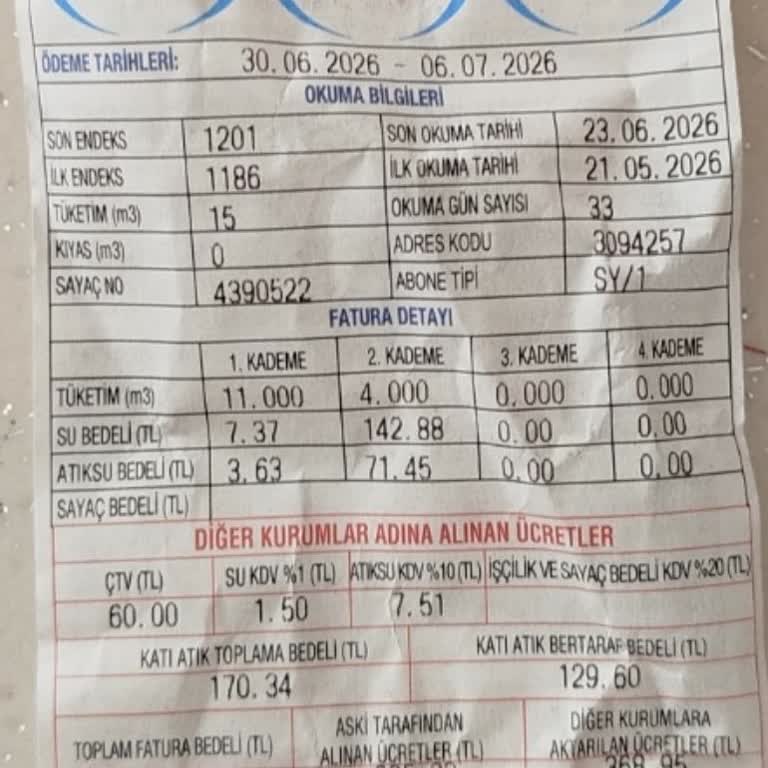 ÖDEME TARİHLERİ: 30.06.2026 - 06.07.2026
OKUMA BİLGİLERİ
SON ENDEKS 1201 SON OKUMA TARİHİ 23.06.2026
İLK ENDEKS 1186 İLK OKUMA TARİHİ 21.05.2026
TÜKETİM (m3) 15 OKUMA GÜN SAYISI 33
KIYAS (m3) 0 ADRES KODU 3094257
SAYAÇ NO 4390522 ABONE TİPİ SY/1
FATURA DETAYI
1. KADEME 2. KADEME 3. KADEME 4. KADEME
TÜKETİM (m3) 11.000 4.000 0.000 0.000
SU BEDELİ (TL) 7.37 142.88 0.00 0.00
ATIKSU BEDELİ (TL) 3.63 71.45 0.00 0.00
SAYAÇ BEDELİ (TL)
DİĞER KURUMLAR ADINA ALINAN ÜCRETLER
ÇTV (TL) SU KDV %1 (TL) ATIKSU KDV %10 (TL) İŞÇİLİK VE SAYAÇ BEDELİ KDV %20 (TL)
60.00 1.50 7.51
KATI ATIK TOPLAMA BEDELİ (TL) KATI ATIK BERTARAF BEDELİ (TL)
170.34 129.60
TOPLAM FATURA BEDELİ (TL) ASKİ TARAFINDAN ALINAN ÜCRETLER (TL) DİĞER KURUMLARA AKTARILAN ÜCRETLER (TL)
368.95